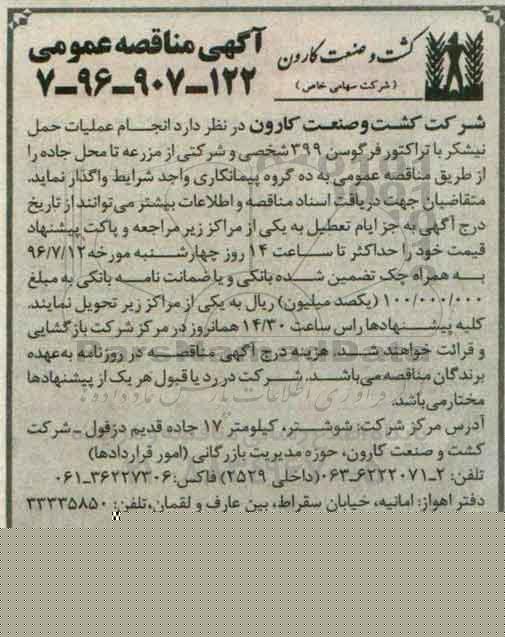 آگهی مناقصه عمومی
۷-۹۶-۹۰۷-۱۲۲
کشت و صنعت کارون
(شرکت سهامی خاص)
شرکت کشت و صنعت کارون در نظر دارد انجام عملیات حمل
نیشکر با تراکتور فرگوسن ۳۹۹ شخصی و شرکتی از مزرعه تا محل جاده را
از طریق مناقصه عمومی به ده گروه پیمانکاری واجد شرایط واگذار نماید.
متقاضیان جهت دریافت اسناد مناقصه و اطلاعات بیشتر می‌توانند از تاریخ
درج آگهی به جز ایام تعطیل به یکی از مراکز زیر مراجعه و پاکت پیشنهاد
قیمت خود را حداکثر تا ساعت ۱۴ روز چهارشنبه مورخه ۹۶/۷/۱۲
به همراه چک تضمین شده بانکی و یا ضمانت نامه بانکی به مبلغ
۱۰۰/۰۰۰/۰۰۰ (یکصد میلیون) ریال به یکی از مراکز زیر تحویل نمایند.
کلیه پیشنهادها راس ساعت ۱۴/۳۰ همانروز در مرکز شرکت بازگشایی
و قرائت خواهند شد. هزینه درج آگهی مناقصه در روزنامه به‌عهده
برندگان مناقصه می‌باشد. شرکت در رد یا قبول هر یک از پیشنهادها
مختار می‌باشد.
آدرس مرکز شرکت: شوشتر، کیلومتر ۱۷ جاده قدیم دزفول -شرکت
کشت و صنعت کارون، حوزه مدیریت بازرگانی (امور قراردادها)
تلفن: ۲-۶۲۲۲۰۷۱-۰۶۳ (داخلی ۲۵۲۹) فاکس: ۳۶۲۲۷۳۰۶-۰۶۱
دفتر اهواز: امانیه، خیابان سقراط، بین عارف و لقمان، تلفن: ۳۳۳۳۵۸۵۰